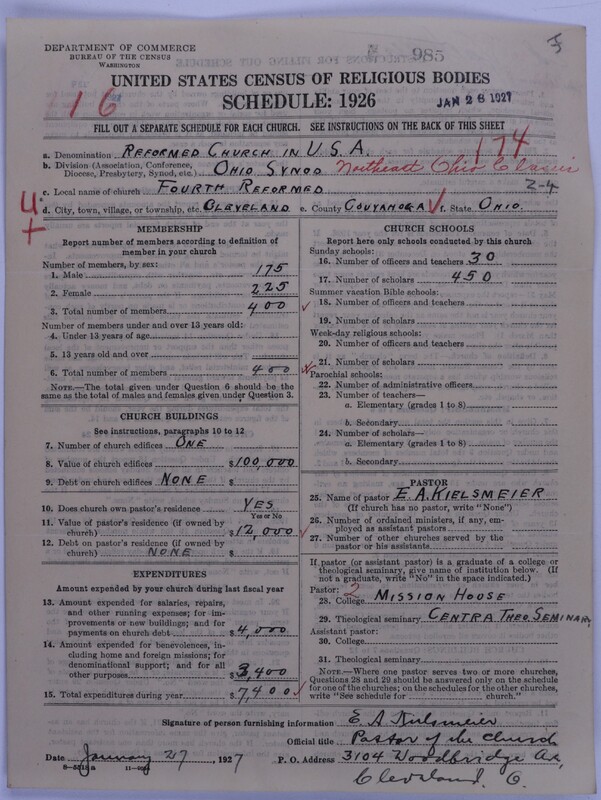 DEPARTMENT OF COMMERCE
BUREAU OF THE CENSUS
WASHINGTON
985
UNITED STATES CENSUS OF RELIGIOUS BODIES
16
SCHEDULE: 1926
JAN 28 1927
FILL OUT A SEPARATE SCHEDULE FOR EACH CHURCH. SEE INSTRUCTIONS ON THE BACK OF THIS SHEET
174
a. Denomination REFORMED CHURCH IN U.S.A.
b. Division (Association, Conference, Diocese, Presbytery, Synod, etc.) OHIO SYNOD Northeast Ohio Classis
c. Local name of church FOURTH REFORMED 2-4
d. City, town, village, or township, etc. CLEVELAND e. County COUYAHOGA f. State OHIO.
MEMBERSHIP
Report number of members according to definition of
member in your church
Number of members, by sex:
1. Male 175
2. Female 225
3. Total number of members 400
Number of members under and over 13 years old:
4. Under 13 years of age
5. 13 years old and over
6. Total number of members 400
NOTE.—The total given under Question 6 should be
same as the total of males and females given under Question 3.
CHURCH BUILDINGS
See instructions, paragraphs 10 to 12
7. Number of church edifices ONE
8. Value of church edifices $100,000
9. Debt on church edifices NONE $
10. Does church own pastor's residence YES
Yes or No
11. Value of pastor's residence (if owned by
church) $12,000
12. Debt on pastor's residence (if owned by
church) NONE $
EXPENDITURES
Amount expended by your church during last fiscal year
13. Amount expended for salaries, repairs,
and other running expenses; for im-
provements or new buildings; and for
payments on church debt $4,000
14. Amount expended for benevolences,
including home and foreign missions; for
denominational support; and for all
other purposes $3,400
15. Total expenditures during year $7,400
CHURCH SCHOOLS
Report here only schools conducted by this church
Sunday schools:
16. Number of officers and teachers 30
17. Number of scholars 450
Summer vacation Bible schools:
18. Number of officers and teachers
19. Number of scholars
Week-day religious schools:
20. Number of officers and teachers
21. Number of scholars
Parochial schools:
22. Number of administrative officers
23. Number of teachers—
a. Elementary (grades 1 to 8)
b. Secondary
24. Number of scholars—
a. Elementary (grades 1 to 8)
b. Secondary
PASTOR
25. Name of pastor E.A. KIELSMEIER
(If church has no pastor, write "None")
26. Number of ordained ministers, if any, em-
ployed as assistant pastors
27. Number of other churches served by the
pastor or his assistants
If pastor (or assistant pastor) is a graduate of a college or
theological seminary, give name of institution below. (If
not a graduate, write "No" in the space indicated.)
Pastor: 2
28. College MISSION HOUSE
29. Theological seminary CENTRA THEO. SEMINARY
Assistant pastor:
30. College
31. Theological seminary
NOTE.—Where one pastor serves two or more churches,
Questions 28 and 29 should be answered only on the schedule
for one of the churches; on the schedules for the other churches,
write "See schedule for church."
Signature of person furnishing information E. A. Kielsmeier
Official title Pastor of the church
Date January 27, 1927 P. O. Address 3104 Woodbridge Av,
Cleveland, O.